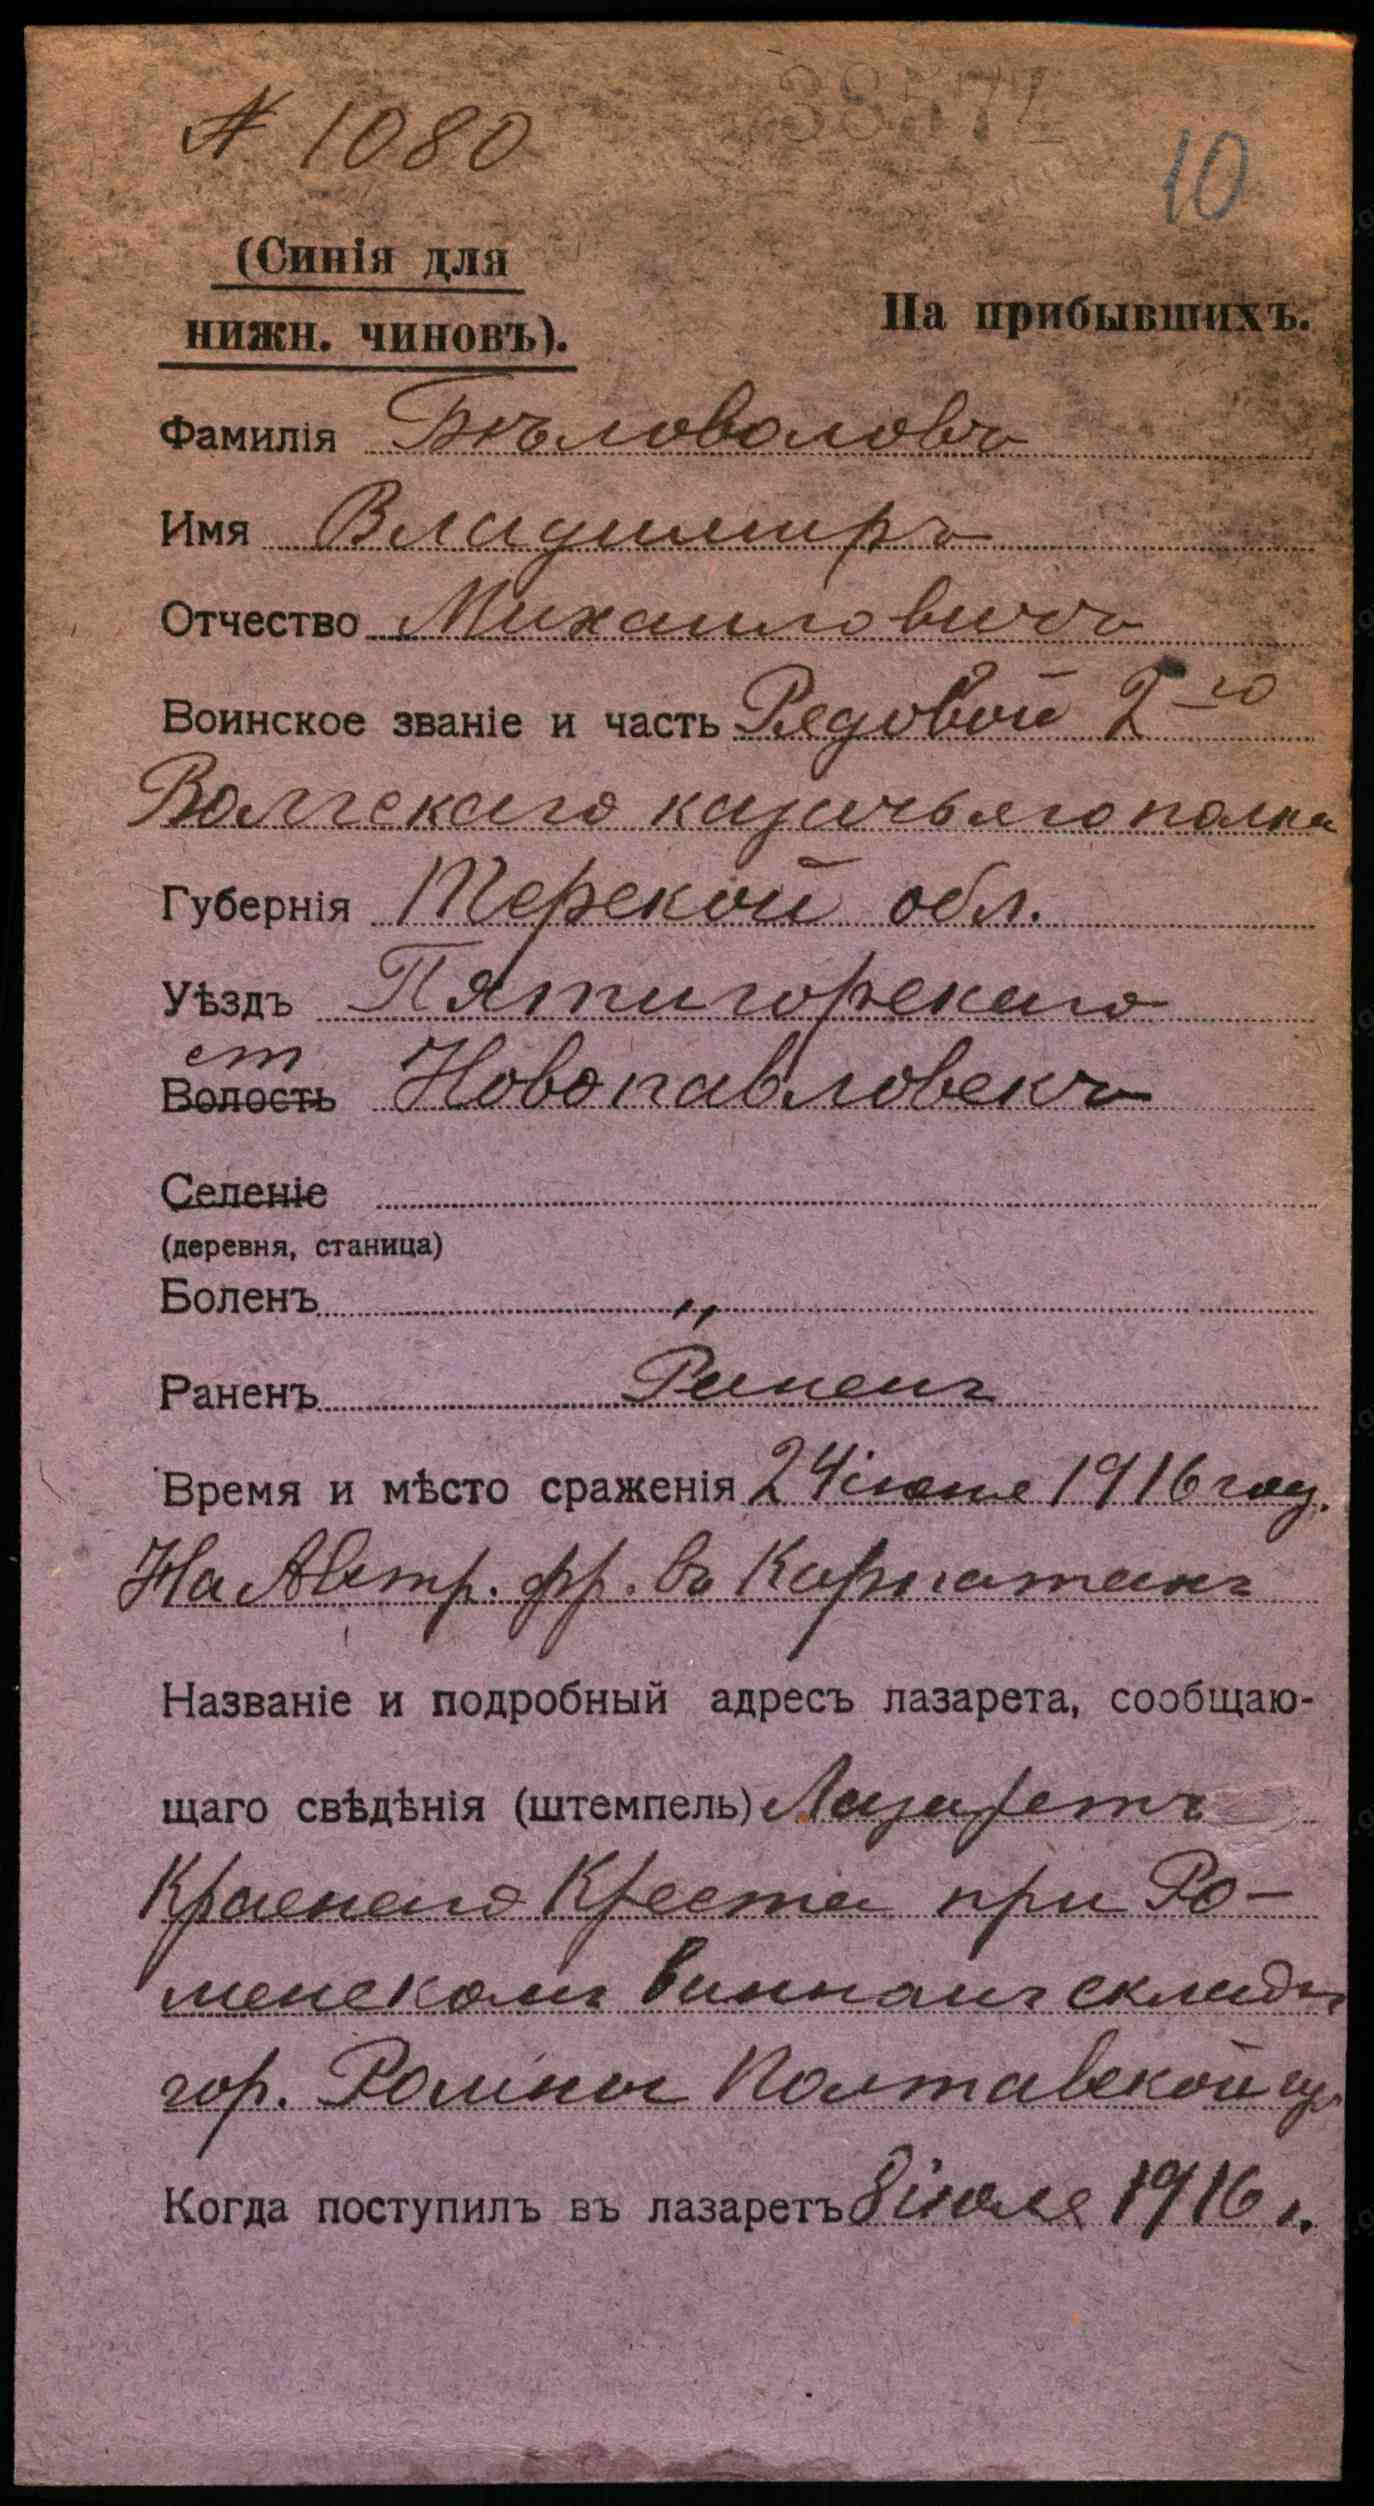 № 1080
10
(Синія для
нижн. чиновъ).
На прибывшихъ.
Фамилія Бѣловоловъ
Имя Владимиръ
Отчество Михаиловичъ
Воинское званіе и часть Рядовой 2-го
Волгскаго казачьяго полка
Губернія Терской обл.
Уѣздъ Пятигорскаго
ст
Волость Новопавловскъ
Селеніе
(деревня, станица)
Боленъ "
Раненъ Раненъ
Время и мѣсто сраженія 24 іюня 1916 год.
На Австр. фр. въ Карпатахъ
Названіе и подробный адресъ лазарета, сообщаю-
щаго свѣдѣнія (штемпель) Лазаретъ
Краснаго Креста при Ро-
менскомъ винномъ складѣ
гор. Ромны Полтавской гу
Когда поступилъ въ лазаретъ 8 іюля 1916 г.